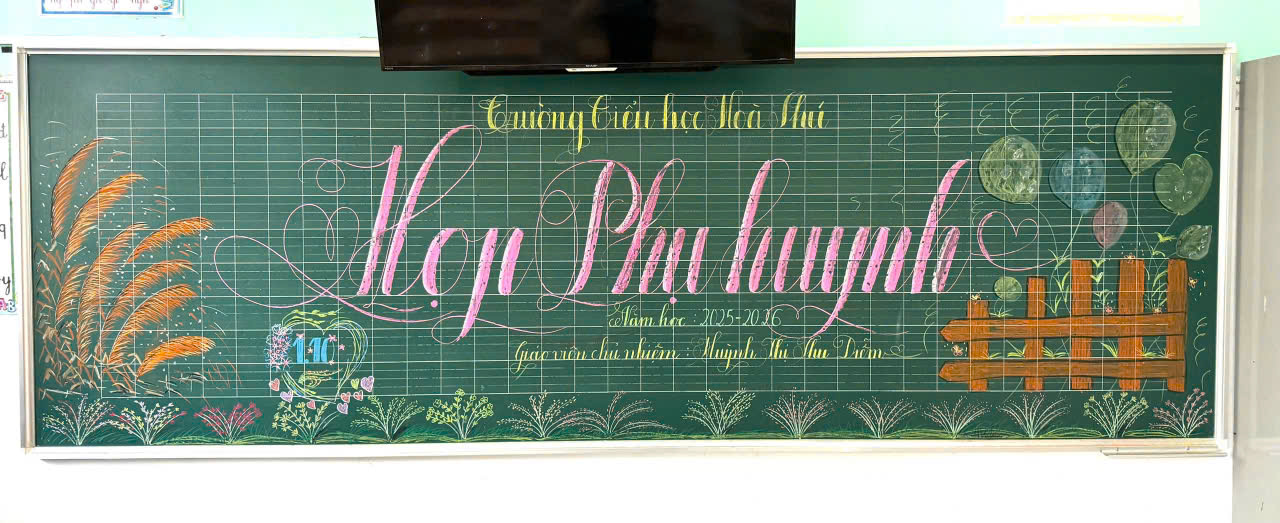 Trường Tiểu học Hoà Phú
Họp Phụ huynh
Năm học : 2025-2026
Giáo viên chủ nhiệm : Huỳnh Thị Thu Diễm